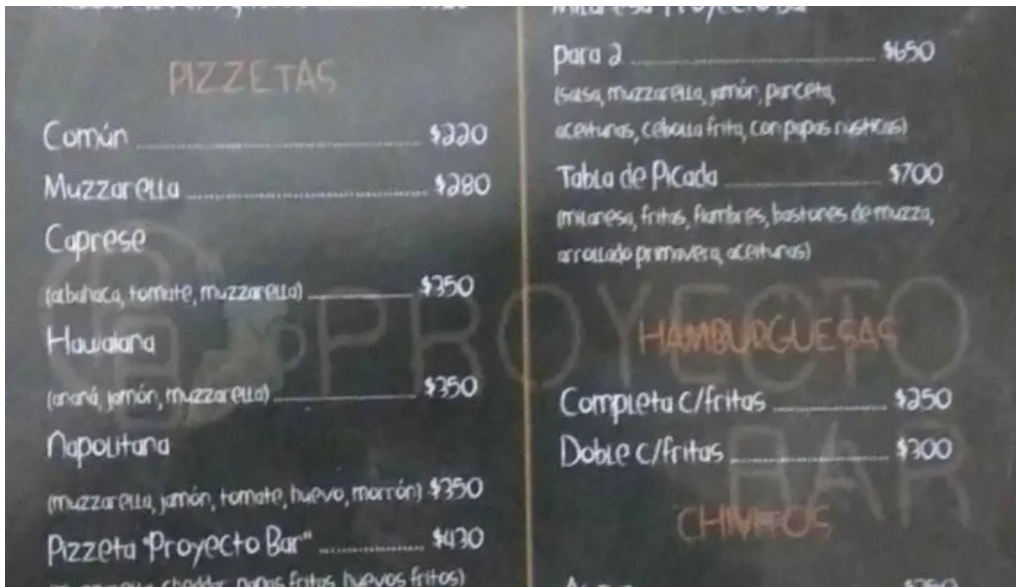 PIZZETAS
Común ........ $220
Muzzarella ........ $280
Caprese
(albahaca, tomate, muzzarella) ........ $350
Hawaiana
(ananá, jamón, muzzarella) ........ $350
Napolitana
(muzzarella, jamón, tomate, huevo, morrón) $350
Pizzeta "Proyecto Bar" ........ $430
cheddar, papas fritas, huevos fritos)
Milanesa Proyecto Bar
para 2 ........ $650
(salsa, muzzarella, jamón, panceta,
aceitunas, cebolla frita, con papas rústicas)
Tabla de Picada ........ $700
(milanesa, fritas, fiambres, bastones de muzza,
arrollado primavera, aceitunas)
HAMBURGUESAS
Completa c/fritas ........ $250
Doble c/fritas ........ $300
CHIVITOS
PROYECTO
BAR